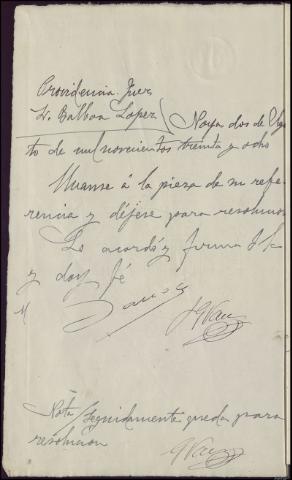 Providencia Juez
Sr. Balboa Lopez / Noya dos de Agos
to de mil novecientos treinta y ocho
Unanse á la pieza de su refe-
rencia y déjese para resolucion
Lo acordó y firma S.Sª
y doy fé
Nota / Seguidamente queda para
resolucion